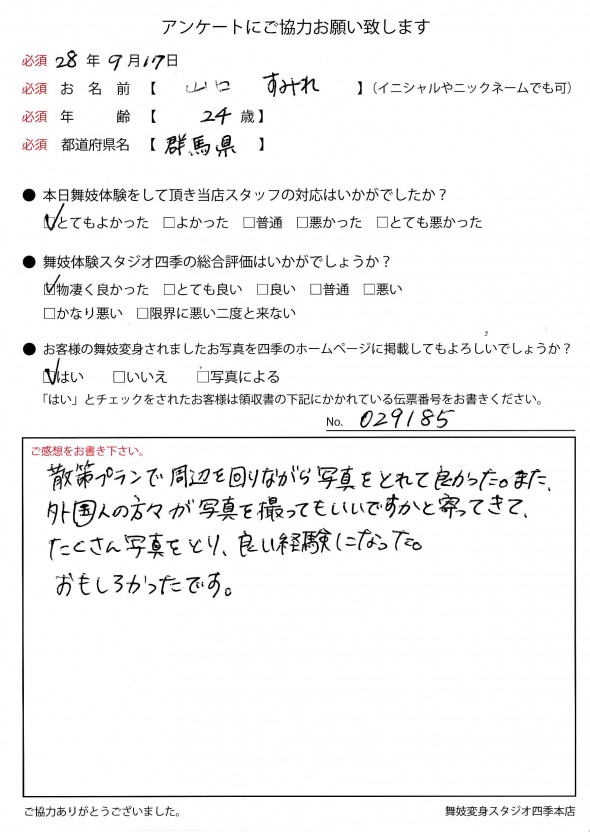 アンケートにご協力お願い致します
必須 28年9月17日
必須 お名前【 山口 すみれ 】（イニシャルやニックネームでも可）
必須 年齢【 24歳】
必須 都道府県名【 群馬県 】
● 本日舞妓体験をして頂き当店スタッフの対応はいかがでしたか？
☑とてもよかった □よかった □普通 □悪かった □とても悪かった
● 舞妓体験スタジオ四季の総合評価はいかがでしょうか？
☑物凄く良かった □とても良い □良い □普通 □悪い
□かなり悪い □限界に悪い二度と来ない
● お客様の舞妓変身されましたお写真を四季のホームページに掲載してもよろしいでしょうか？
☑はい □いいえ □写真による
「はい」とチェックをされたお客様は領収書の下記にかかれている伝票番号をお書きください。
No. 029185
ご感想をお書き下さい。
散策プランで周辺を回りながら写真をとれて良かった。また、
外国人の方々が写真を撮ってもいいですかと寄ってきて、
たくさん写真をとり、良い経験になった。
おもしろかったです。
ご協力ありがとうございました。
舞妓変身スタジオ四季本店